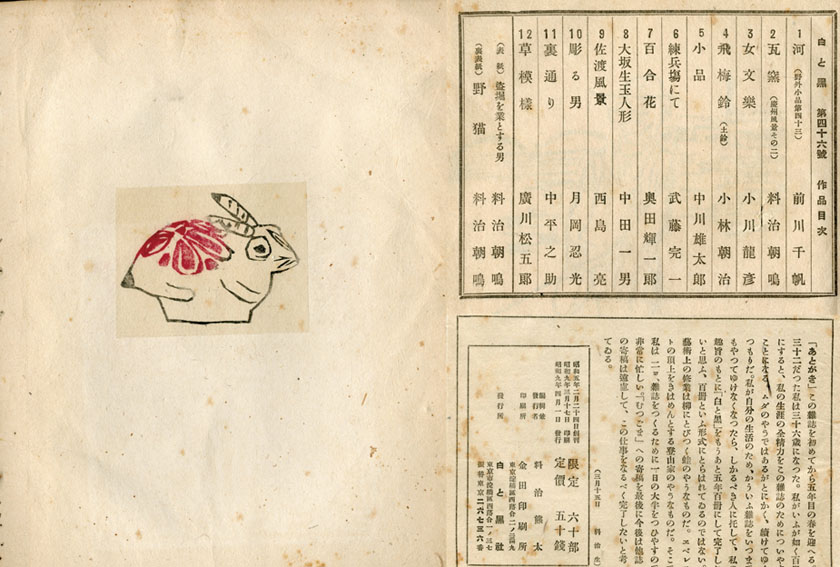 白と黑　第四十六號　作品目次
1 河（野外小品第四十三）　前川千帆
2 瓦窯（慶州風景その二）　料治朝鳴
3 女文樂　小川龍彦
4 飛梅鈴（土鈴）　小林朝治
5 小品　中川雄太郎
6 練兵場にて　武藤完一
7 百合花　奥田輝一郎
8 大坂生玉人形　中田一男
9 佐渡風景　西島亮
10 彫る男　月岡忍光
11 裏通り　中平之助
12 草模樣　廣川松五郎
（表紙）盜掘を業とする男　料治朝鳴
（裏表紙）野猫　料治朝鳴
「あとがき」この雜誌を初めてから五年目の春を迎へる
三十二だつた私は三十六歳になつた。私がいふが如く百
にすると、私の生涯の全精力をこの雜誌のためについや
ことになる。ムダのやうではあるがとにかく、續けてゆ
つもりだ。私が自分の生活のため、かういふ雜誌をいつま
もやつてゆけなくなつたら、しかるべき人に托して、私
趣旨のもとに「白と黑」をもうあと五年百冊にして完了し
いと思ふ、百冊といふ形式にとらはれてゐるのではない
藝術上の修業は柳にとびつく蛙のやうなものだ。エベレ
トの頂上をきはめんとする登山家のやうなものだ。そこ
私は一つ雜誌をつくるために一日の大半をつひやすの
非常に忙しい。「むつごま」への寄稿を最後に今後は他誌
の寄稿は遠慮して、この仕事をなるべく完了したいと考
てゐる。
（三月十五日　料治生）
昭和五年二月二十四日創刊
昭和九年三月十七日　印刷
昭和九年四月一日　發行
限定　六十部
定價　五十錢
編輯兼
發行者　料治熊太
印刷所　金田印刷所
東京淀橋區西落合二ノ三四九
發行所　白と黑社
東京市淀橋區西落合一ノ三七
振替東京二六七三六番